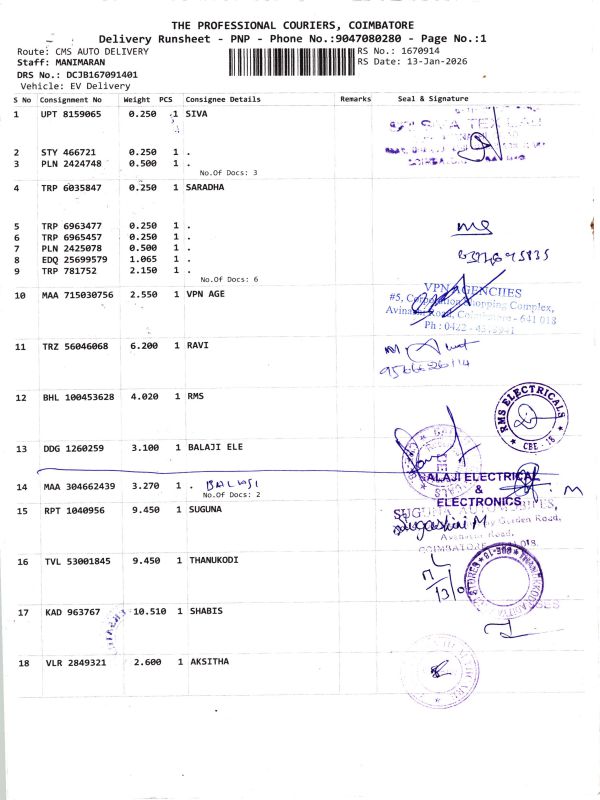 THE PROFESSIONAL COURIERS, COIMBATORE
Delivery Runsheet - PNP - Phone No.:9047080280 - Page No.:1
Route: CMS AUTO DELIVERY
RS No.: 1670914
Staff: MANIMARAN
RS Date: 13-Jan-2026
DRS No.: DCJB167091401
Vehicle: EV Delivery
S No Consignment No Weight PCS Consignee Details Remarks Seal & Signature
1 UPT 8159065 0.250 1 SIVA
2 STY 466721 0.250 1 .
3 PLN 2424748 0.500 1 .
No.Of Docs: 3
4 TRP 6035847 0.250 1 SARADHA
5 TRP 6963477 0.250 1 .
6 TRP 6965457 0.250 1 .
7 PLN 2425078 0.500 1 .
8 EDQ 25699579 1.065 1 .
9 TRP 781752 2.150 1 .
No.Of Docs: 6
10 MAA 715030756 2.550 1 VPN AGE
VPN AGENCIES
#5, Corporation Shopping Complex,
Avinashi Road, Coimbatore - 641 018
Ph : 0422 -
11 TRZ 56046068 6.200 1 RAVI
12 BHL 100453628 4.020 1 RMS
RMS ELECTRICALS
CBE - 18
13 DDG 1260259 3.100 1 BALAJI ELE
BALAJI ELECTRICAL
&
ELECTRONICS
14 MAA 304662439 3.270 1 . BALAJI
No.Of Docs: 2
15 RPT 1040956 9.450 1 SUGUNA
SUGUNA AUTOMOBILES,
Garden Road,
Avinashi Road,
16 TVL 53001845 9.450 1 THANUKODI
17 KAD 963767 10.510 1 SHABIS
18 VLR 2849321 2.600 1 AKSITHA